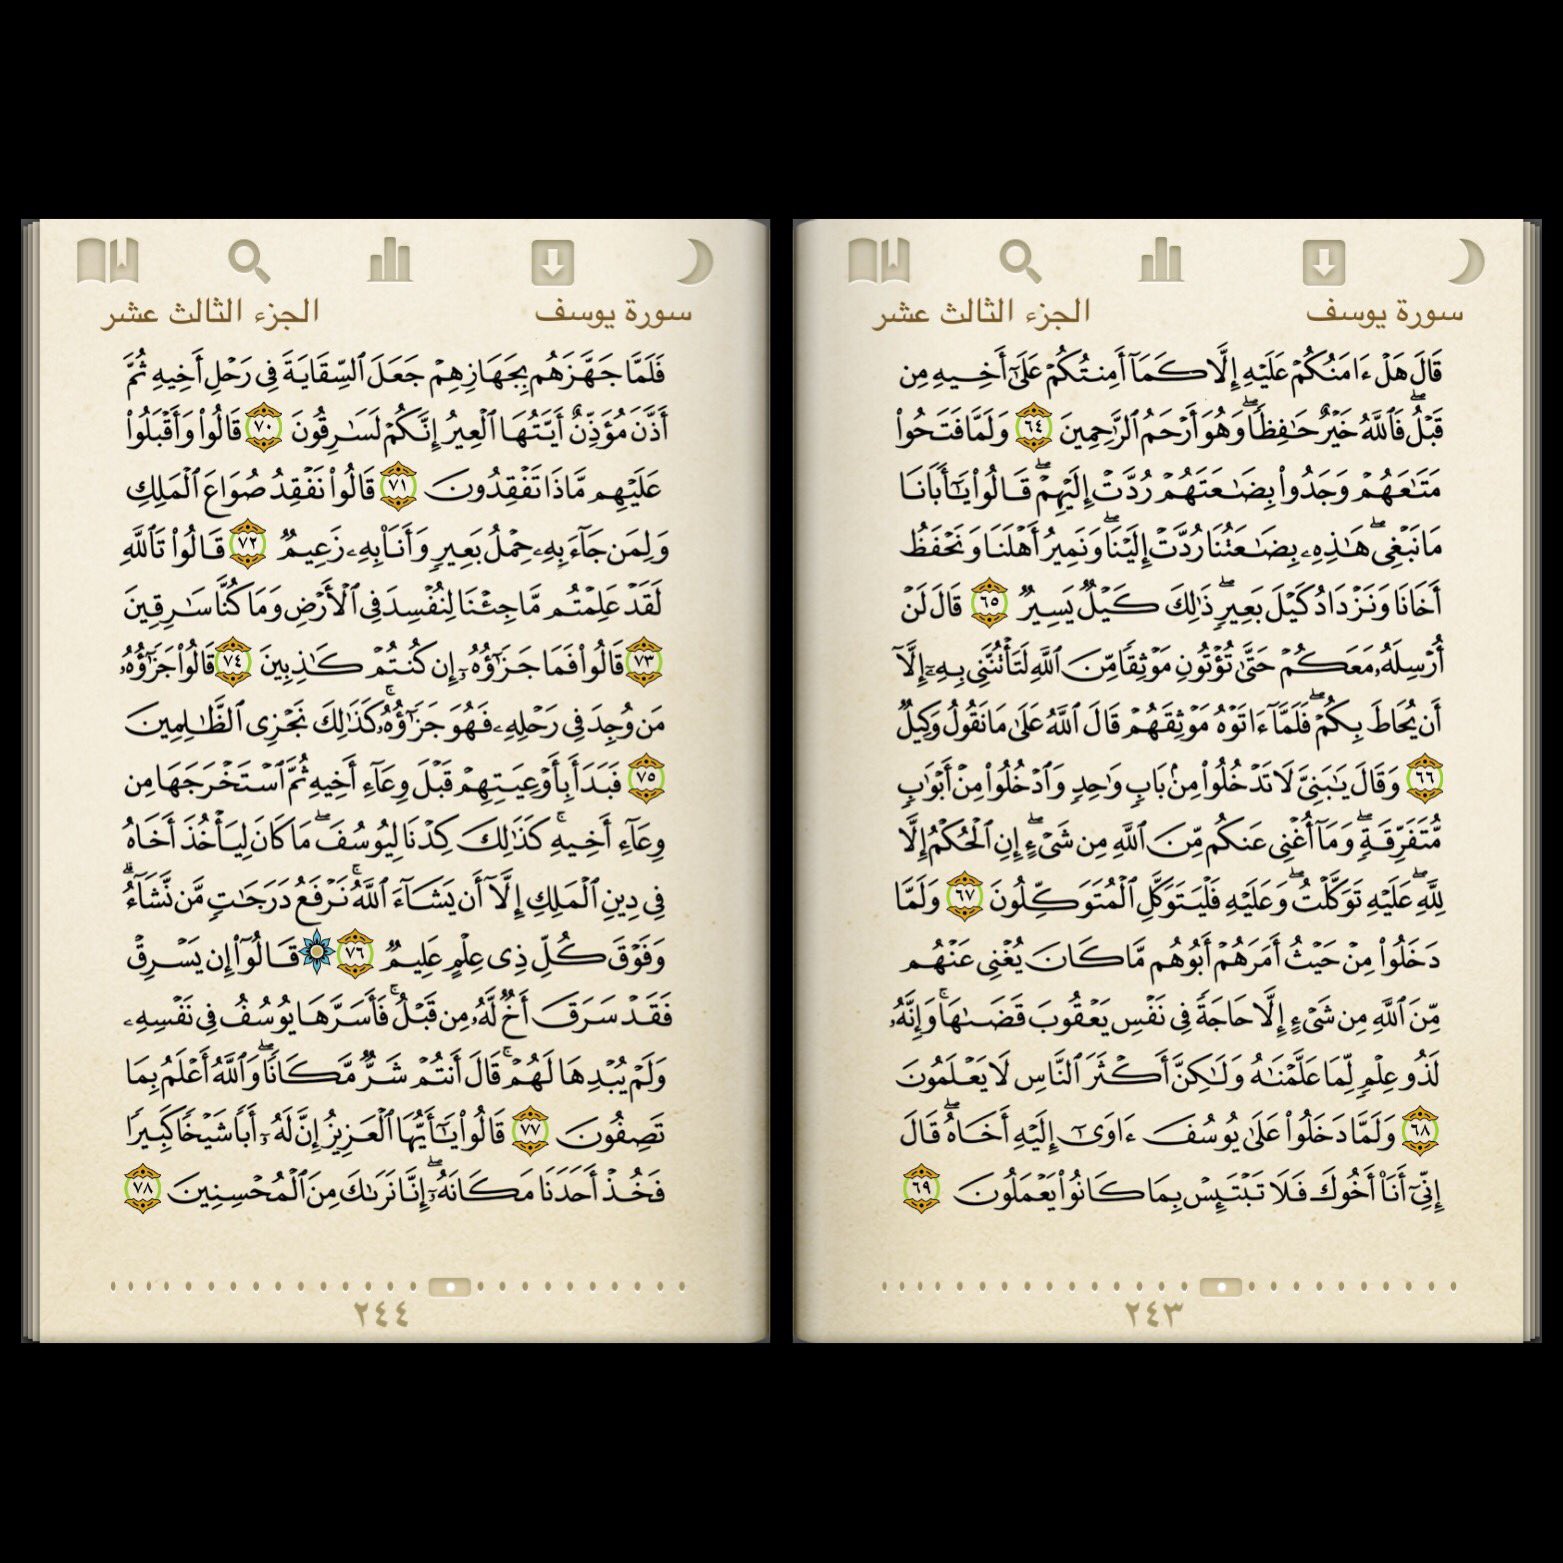 سورة يوسف
الجزء الثالث عشر
قَالَ هَلْ ءَامَنُكُمْ عَلَيْهِ إِلَّا كَمَآ أَمِنتُكُمْ عَلَىٰٓ أَخِيهِ مِن
قَبْلُ ۖ فَٱللَّهُ خَيْرٌ حَٰفِظًا ۖ وَهُوَ أَرْحَمُ ٱلرَّٰحِمِينَ ٦٤ وَلَمَّا فَتَحُوا۟
مَتَٰعَهُمْ وَجَدُوا۟ بِضَٰعَتَهُمْ رُدَّتْ إِلَيْهِمْ ۖ قَالُوا۟ يَٰٓأَبَانَا
مَا نَبْغِى ۖ هَٰذِهِۦ بِضَٰعَتُنَا رُدَّتْ إِلَيْنَا ۖ وَنَمِيرُ أَهْلَنَا وَنَحْفَظُ
أَخَانَا وَنَزْدَادُ كَيْلَ بَعِيرٍ ۖ ذَٰلِكَ كَيْلٌ يَسِيرٌ ٦٥ قَالَ لَنْ
أُرْسِلَهُۥ مَعَكُمْ حَتَّىٰ تُؤْتُونِ مَوْثِقًا مِّنَ ٱللَّهِ لَتَأْتُنَّنِى بِهِۦٓ إِلَّآ
أَن يُحَاطَ بِكُمْ ۖ فَلَمَّآ ءَاتَوْهُ مَوْثِقَهُمْ قَالَ ٱللَّهُ عَلَىٰ مَا نَقُولُ وَكِيلٌ
٦٦ وَقَالَ يَٰبَنِىَّ لَا تَدْخُلُوا۟ مِنۢ بَابٍ وَٰحِدٍ وَٱدْخُلُوا۟ مِنْ أَبْوَٰبٍ
مُّتَفَرِّقَةٍ ۖ وَمَآ أُغْنِى عَنكُم مِّنَ ٱللَّهِ مِن شَىْءٍ ۖ إِنِ ٱلْحُكْمُ إِلَّا
لِلَّهِ ۖ عَلَيْهِ تَوَكَّلْتُ ۖ وَعَلَيْهِ فَلْيَتَوَكَّلِ ٱلْمُتَوَكِّلُونَ ٦٧ وَلَمَّا
دَخَلُوا۟ مِنْ حَيْثُ أَمَرَهُمْ أَبُوهُم مَّا كَانَ يُغْنِى عَنْهُم
مِّنَ ٱللَّهِ مِن شَىْءٍ إِلَّا حَاجَةً فِى نَفْسِ يَعْقُوبَ قَضَىٰهَا ۚ وَإِنَّهُۥ
لَذُو عِلْمٍ لِّمَا عَلَّمْنَٰهُ وَلَٰكِنَّ أَكْثَرَ ٱلنَّاسِ لَا يَعْلَمُونَ
٦٨ وَلَمَّا دَخَلُوا۟ عَلَىٰ يُوسُفَ ءَاوَىٰٓ إِلَيْهِ أَخَاهُ ۖ قَالَ
إِنِّىٓ أَنَا۠ أَخُوكَ فَلَا تَبْتَئِسْ بِمَا كَانُوا۟ يَعْمَلُونَ ٦٩
٢٤٣
سورة يوسف
الجزء الثالث عشر
فَلَمَّا جَهَّزَهُم بِجَهَازِهِمْ جَعَلَ ٱلسِّقَايَةَ فِى رَحْلِ أَخِيهِ ثُمَّ
أَذَّنَ مُؤَذِّنٌ أَيَّتُهَا ٱلْعِيرُ إِنَّكُمْ لَسَٰرِقُونَ ٧٠ قَالُوا۟ وَأَقْبَلُوا۟
عَلَيْهِم مَّاذَا تَفْقِدُونَ ٧١ قَالُوا۟ نَفْقِدُ صُوَاعَ ٱلْمَلِكِ
وَلِمَن جَآءَ بِهِۦ حِمْلُ بَعِيرٍ وَأَنَا۠ بِهِۦ زَعِيمٌ ٧٢ قَالُوا۟ تَٱللَّهِ
لَقَدْ عَلِمْتُم مَّا جِئْنَا لِنُفْسِدَ فِى ٱلْأَرْضِ وَمَا كُنَّا سَٰرِقِينَ
٧٣ قَالُوا۟ فَمَا جَزَٰٓؤُهُۥٓ إِن كُنتُمْ كَٰذِبِينَ ٧٤ قَالُوا۟ جَزَٰٓؤُهُۥ
مَن وُجِدَ فِى رَحْلِهِۦ فَهُوَ جَزَٰٓؤُهُۥ ۚ كَذَٰلِكَ نَجْزِى ٱلظَّٰلِمِينَ
٧٥ فَبَدَأَ بِأَوْعِيَتِهِمْ قَبْلَ وِعَآءِ أَخِيهِ ثُمَّ ٱسْتَخْرَجَهَا مِن
وِعَآءِ أَخِيهِ ۚ كَذَٰلِكَ كِدْنَا لِيُوسُفَ ۖ مَا كَانَ لِيَأْخُذَ أَخَاهُ
فِى دِينِ ٱلْمَلِكِ إِلَّآ أَن يَشَآءَ ٱللَّهُ ۚ نَرْفَعُ دَرَجَٰتٍ مَّن نَّشَآءُ ۗ
وَفَوْقَ كُلِّ ذِى عِلْمٍ عَلِيمٌ ٧٦ قَالُوٓا۟ إِن يَسْرِقْ
فَقَدْ سَرَقَ أَخٌ لَّهُۥ مِن قَبْلُ ۚ فَأَسَرَّهَا يُوسُفُ فِى نَفْسِهِۦ
وَلَمْ يُبْدِهَا لَهُمْ ۚ قَالَ أَنتُمْ شَرٌّ مَّكَانًا ۖ وَٱللَّهُ أَعْلَمُ بِمَا
تَصِفُونَ ٧٧ قَالُوا۟ يَٰٓأَيُّهَا ٱلْعَزِيزُ إِنَّ لَهُۥٓ أَبًا شَيْخًا كَبِيرًا
فَخُذْ أَحَدَنَا مَكَانَهُۥٓ ۖ إِنَّا نَرَىٰكَ مِنَ ٱلْمُحْسِنِينَ ٧٨
٢٤٤